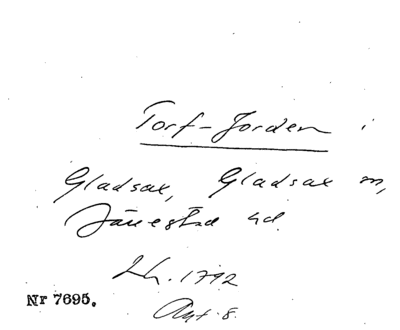 Torf-Jorden i
Gladsax, Gladsax m,
Järrestad hd.
Lh. 1792
Nr 7695.
8.